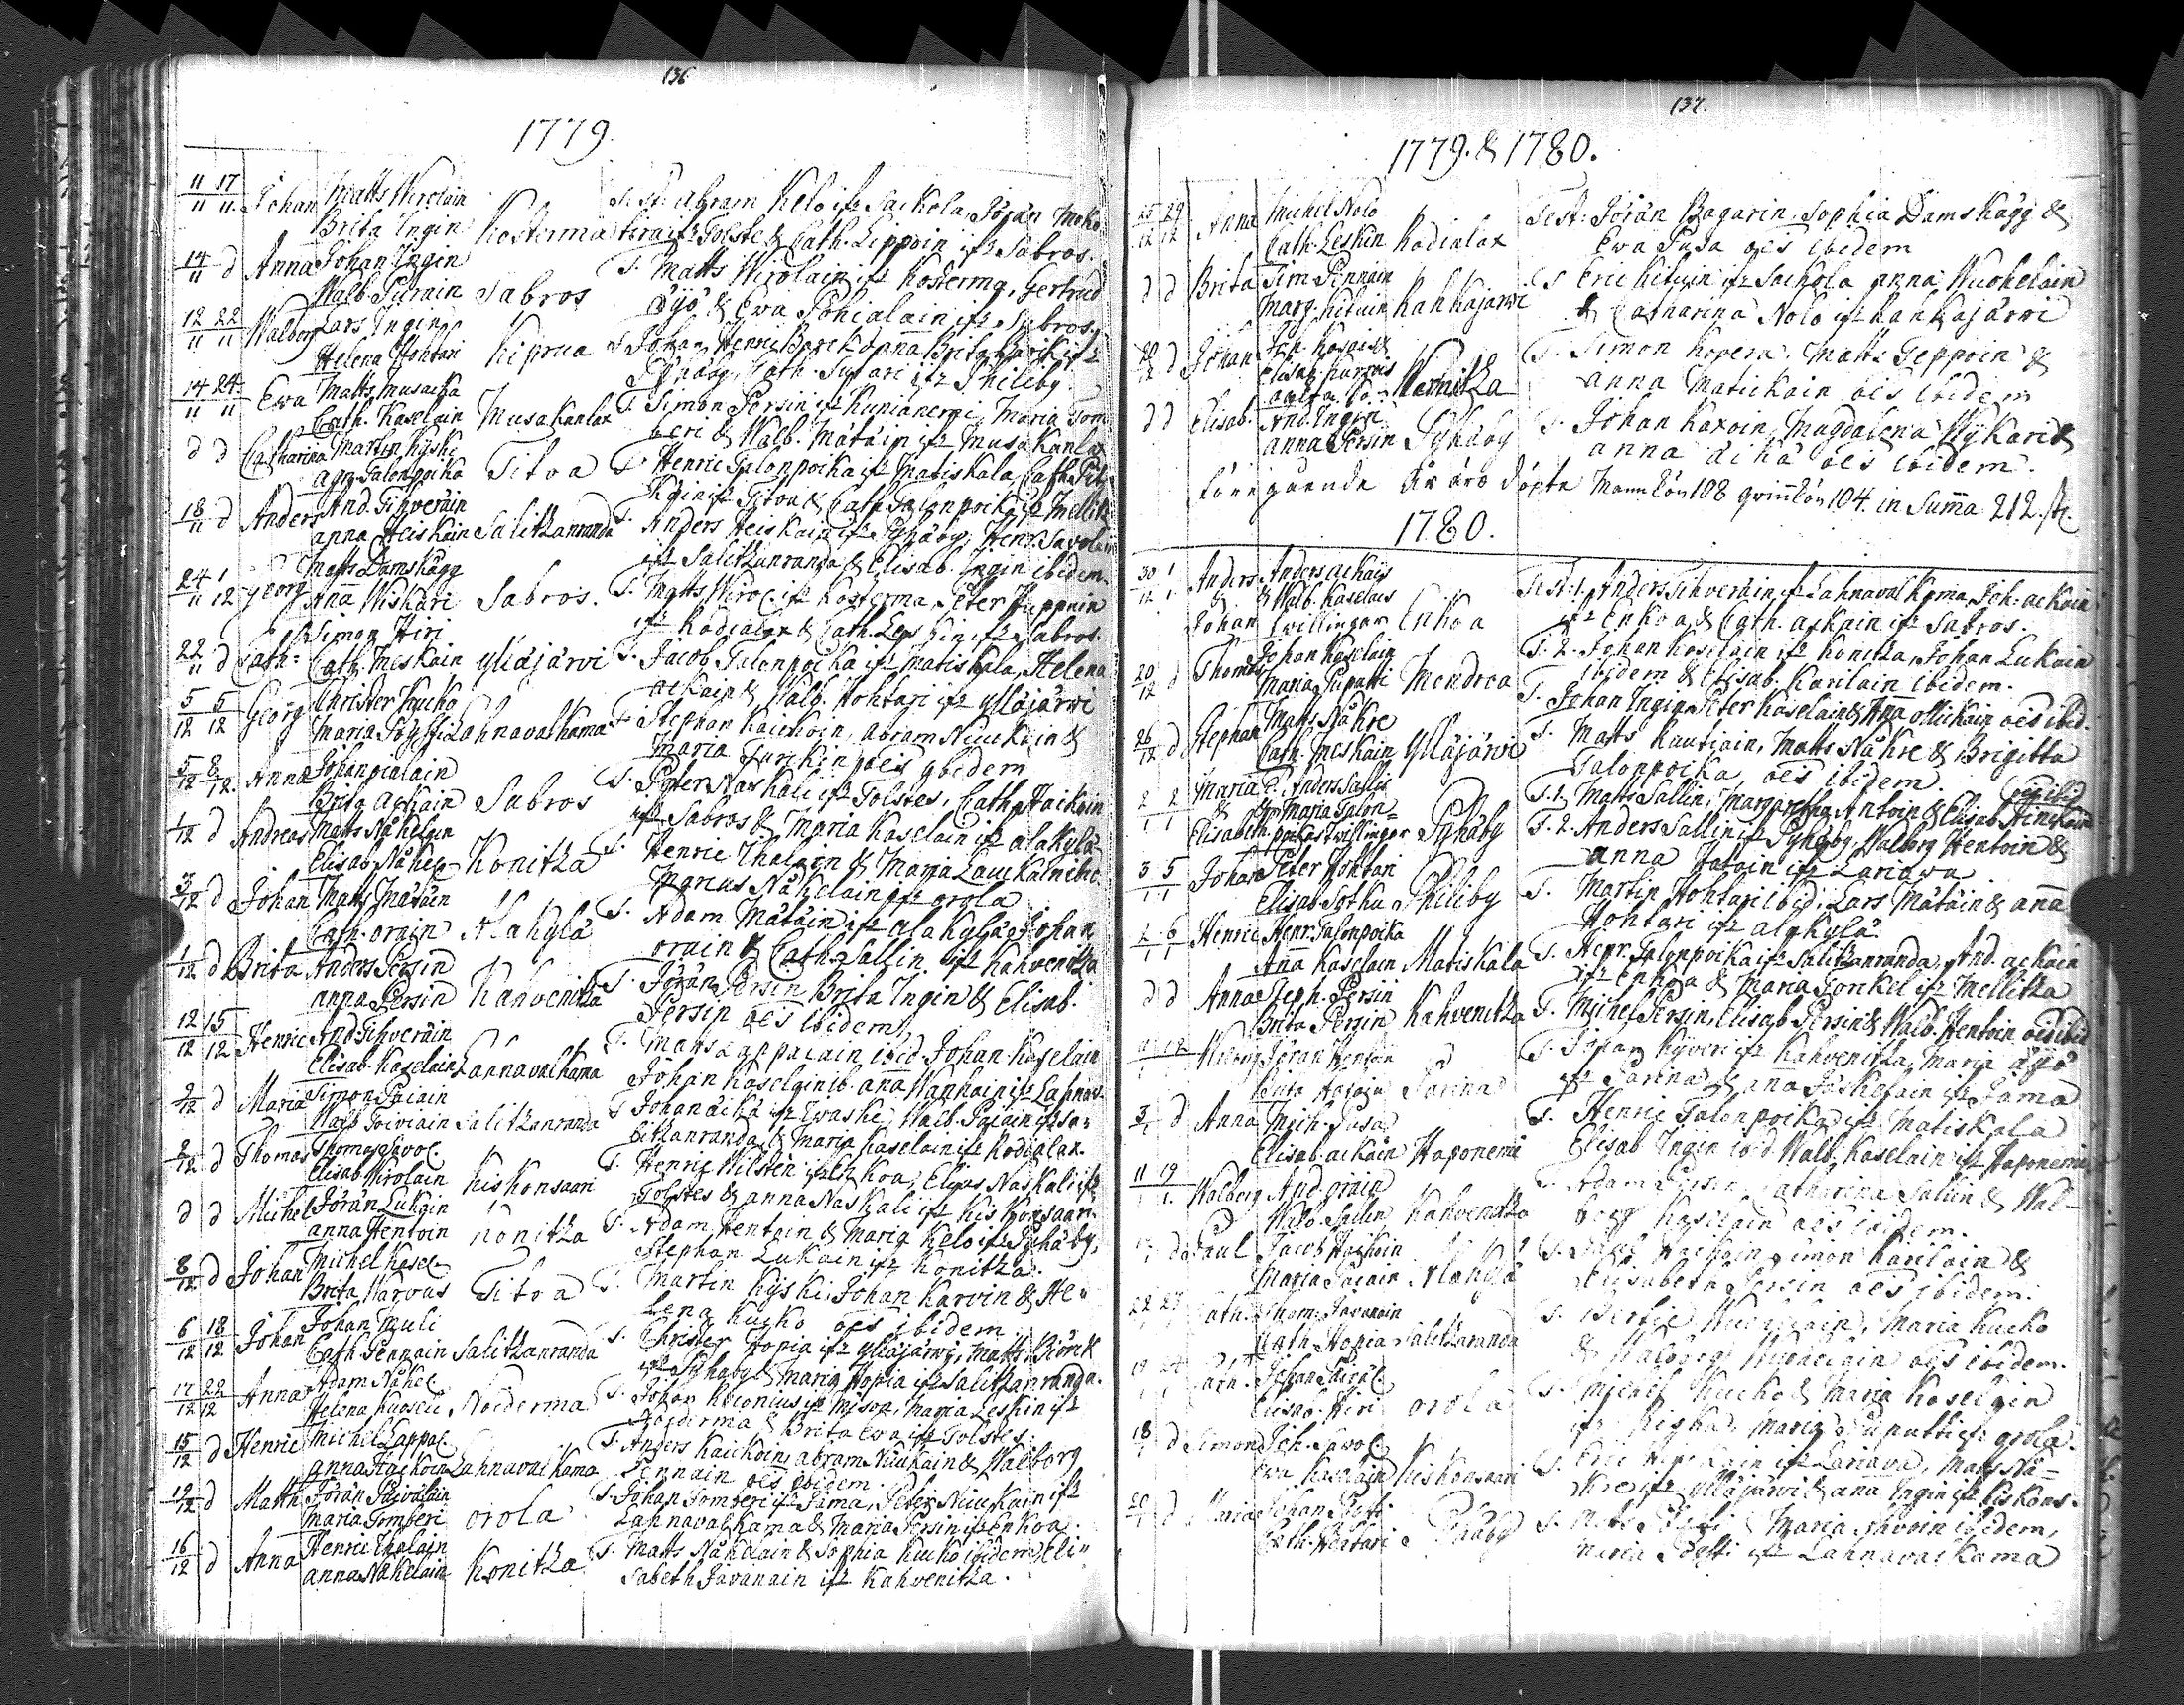 136
1779.
11 17
11 11. Johan Matts Wirolain
Brita Ingin Kosterma
T. st: Abram Kelo ifr Sackola, Jöran Moko-
ifr Tolste & Cath. Lippoin ifr Sabros.
14 d Anna Johan Ingin
11 Walb. Pyrain Sabros
T. Matts Wirolain ifr Kosterma, Gertrud
Äijö & Ewa Pohialain ifr Sabros.
12 22 Walborg Lars Ingin
11 11 Helena Hohtari Kiprua
Johan, Henric & Anna Brita
Pyhäby, Cath. ifr Phileby
14 24 Ewa Matts Musacka
11 11 Cath. Kaselain Musakanlax
T. Simon Persin ifr Kupianemi, Maria Tom-
beri & Walb. Mätäin ifr Musakanlax
d d Catharina Martin Kyski
agn. Talonpoika Titoa
T. Henric Talonpoika ifr Matiskala, Cath. Pit-
ifr Titoa & Cath. Talonpoika ifr Mellitz
18 d Anders And. Tihveräin
11 anna Heiskain Salitzanranda
T. Anders Heiskain ifr Pyhäby, Henr. Savolain
ifr Salitzanranda & Elisab. Ingin ibidem.
24 1 Georg Matts Damskägg
11 12 Ana Wiskari Sabros.
T. Matts Wirol. ifr Kosterma, Peter Huppoin
ifr Kodialax & Cath. Leskin ifr Sabros.
22 d Cath: Simon Hiri
11 Cath. Meskain Ylläjärvi
T. Jacob Talonpoika ifr Matiskala, Helena
ackain & Walb. Hohtari ifr Ylläjärvi
5 5 Georg Christer Kucko
12 12 Maria Pöysti Lahnavalkama
T. Stephan Kaickoin, abram Niuckain &
Maria Turckin oes ibidem
5 8 Anna Johan pialain
12 12. Brita ackain Sabros
T. Peter Naskali ifr Tolstes, Cath. Haikoin
ifr Sabros & Maria Kaselain ifr alakylä
1 d Andreas Matts Nåkelain
12 Elisab. Nåkel. Konitza
T. Henric Ihalain & Maria Laukain ibid.
Marcus Nåkelain ifr orola
3 d Johan Matts Mätäin
12 Cath. orain Alakylä
T. Adam Mätäin ifr alakylä Johan
orain & Cath. Sallin ifr Kahvenitza
1 d Brita Anders Persin
12 anna Persin Kahvenitza
T. Jöran Persin Brita Ingin & Elisab.
Persin oes ibidem
12 15 Henric And. Tihveräin
12 12 Elisab. Kaselain Lahnavalkama
T. Mats Lappalain ibid. Johan Kaselain
Johan Kaselain ib. ana Wanhain ifr Lahnav.
2 d Maria Simon Paiain
12 Walb. Toiviain Salitzanranda
T. Johan äikä ifr Ewaske, Walb. Paiain ifr Sa-
litzanranda & Maria Kaselain ifr Kodialax.
2 d Thomas Thomas Savol.
12 Elisab. Wirolain Kiskonsaari
T. Henric Wilsten ifr Enkoa, Elias Naskali ifr
Tolstes & anna Naskali ifr Kiskonsaari
d d Michel Jöran Lukain
anna Hentoin Konitza
T. Adam Hentoin & Maria Kelo ifr Pyhäby,
Stephan Lukain ifr Konitza.
8 d Johan Michel Kasel.
12 Brita Warvas Titoa
T. Martin Kyski, Johan Karvin & He-
lena Kucko oes ibidem
6 18 Johan Johan Muli
12 12 Cath. Pennain Salitzanranda
T. Christer Hopia ifr Ylläjärvi, Matts Biörck
ifr Pyhäby & Maria Hopia ifr Salitzanranda.
17 22 Anna Adam Nåkel.
12 12 Helena Noiderma
T. Johan ifr Maria Leskin ifr
Noiderma & Brita Ewa ifr Tolstes.
15 d Henric Michel Lappal.
12 anna Haikoin Lahnavalkama
T. Anders Kaickoin, abram Niuckain & Walborg
Pennain oes ibidem.
19 d Matth. Jöran Päiväläin
12 Maria Tomberi orola
T. Johan Tomberi ifr Jama, Peter Niuckain ifr
Lahnavalkama & Maria Persin ifr Enkoa
16 d Anna Henric Ihalain
12 anna Nåkelain Konitza
T. Matts Nåkelain & Sophia Kucko ibidem Eli-
sabeth Javanain ifr Kahvenitza.
137.
1779. & 1780.
25 29 Anna Michel Nolo
12 12 Cath. Leskin Kodialax
Test: Jöran Bagarin, Sophia Damskägg &
Ewa Susa oes ibidem
d d Brita Sim. Pennain
Marg. Kituin Kahkajärwi
T Eric Kituin ifr Sackola anna Wuohelain
& Catharina Nolo ifr Kahkajärwi
d Johan Joh.
Elisab. Wernitza
T. Simon Kopera, Matts Teppoin &
anna Matickain oes ibidem
d d Elisab. And. Ingin
anna Persin Pyhäby
T. Johan Karoin, Magdalena Wykari &
anna äikä oes ibidem.
Föregående År äro döpte Mannkön 108 qvinnkön 104. in Summa 212. st.
1780.
30 1 Anders Anders ackain
12 1 & Walb. Kaselain
Johan twillingar Enkoa
Test: 1. Anders Tihveräin ifr Lahnavalkama, Joh. ackain
ifr Enkoa & Cath. ackain ifr Sabros.
T. 2. Johan Kaselain ifr Konitza, Johan Lukain
ibidem & Elisab. Karilain ibidem.
20 d Thomas Johan Kaselain
12 Maria Puputti Mendrea
T. Johan Ingin, Peter Kaselain & Ana ollickain oes ibid.
26 d Stephan Matts Näkre
12 Cath. Meskain Ylläjärvi
T. Matts Kautiain, Matts Näkre & Brigitta
Talonpoika, oes ibidem.
2 2 Maria Anders Sallin
1 1 & Maria Talon-
Elisabeth poika twillingar Pyhäby
T. 1. Matts Sallin, Margaretha Antoin & Elisab. oes ibid.
T. 2. Anders Sallin ifr Pyhäby, Walborg Hentoin &
anna ifr Lariava
3 5 Johan Peter Hohtari
1 1 Elisab. Sothu Phileby
T. Martin Hohtari ibid. Lars Mätäin & ana
Hohtari ifr alakylä
2 6 Henric Henr. Talonpoika
1 1 Ana Kaselain Matiskala
T. Henr. Talonpoika ifr Salitzanranda, And. ackain
ifr Enkoa & Maria Tonkel ifr Mellitza
d d Anna Steph. Persin
Brita Persin Kahvenitza
T. Michel Persin, Elisab. Persin & Walb. Hentoin oes ibid.
Jöran Hentoin
Parina
T. Johan Kyveri ifr Kahvenitza, Maria äijö
ifr Parina & ana Jäskelain ifr Jama
3 d Anna Mich. Susa
1 Elisab. ackain Haponemi
T. Henric Talonpoika ifr Matiskala
Elisab. Ingin ibid. Walb. Kaselain ifr Haponemi
11 19 Walborg And. orain
1 1. Walb. Sallin Kahvenitza
T. Adam Persin, Catharina Sallin & Wal-
borg Kaselain oes ibidem.
d Paul Jacob Haikoin
Maria Paiain Alakylä
T. Haikoin, Simon Karilain &
Elisabeth Persin oes ibidem.
22 23 Cath. Thom. Javanain
Cath. Hopia Salitzanranda
T. Maria Kucko
& Walborg oes ibidem.
19 24 Cath. Johan
Elisab. Hiri orola
T. Michel Kucko & Maria Kaselain
ifr Maria Puputti ifr orola.
18 d Simon Joh. Savol.
1 Ewa Kaselain Kiskonsaari
T. Eric ifr Lariava, Matts Nä-
kre ifr Ylläjärvi & ana Ingin ifr Kiskons.
20 d Maria Johan
1 Cath. Hohtari Pyhäby
T. Mats & Maria ibidem,
Maria Pöysti ifr Lahnavalkama